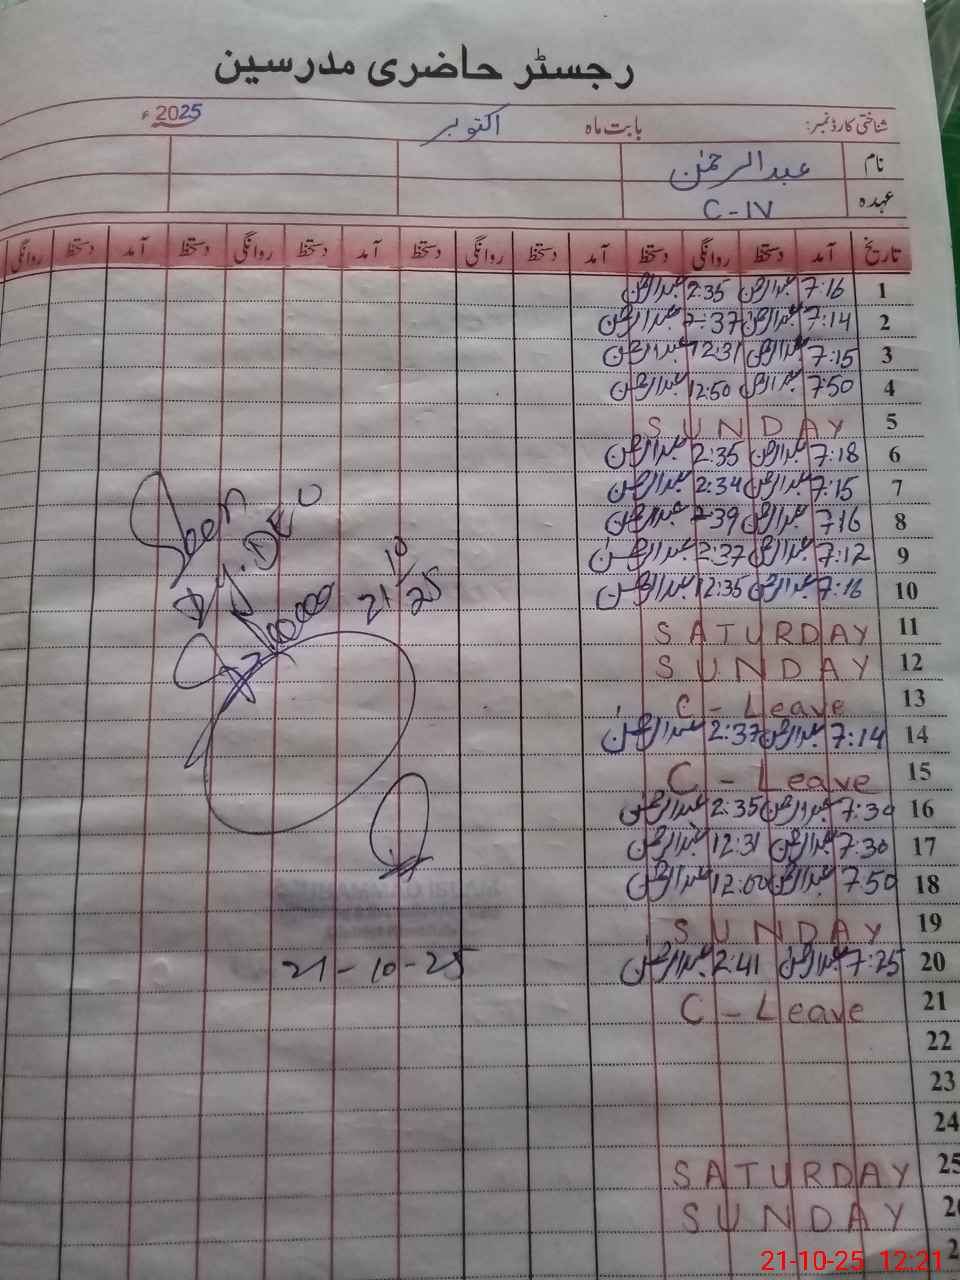 رجسٹر حاضری مدرسین
شناختی کارڈ نمبر: بابت ماہ اکتوبر 2025ء
نام عبدالرحمٰن
عہدہ C-IV
تاریخ آمد دستخط روانگی دستخط آمد دستخط روانگی دستخط آمد دستخط روانگی
1 7:16 عبدالرحمٰن 2:35 عبدالرحمٰن
2 7:14 عبدالرحمٰن 2:37 عبدالرحمٰن
3 7:15 عبدالرحمٰن 12:31 عبدالرحمٰن
4 7:50 عبدالرحمٰن 12:50 عبدالرحمٰن
5 SUNDAY
6 7:18 عبدالرحمٰن 2:35 عبدالرحمٰن
7 7:15 عبدالرحمٰن 2:34 عبدالرحمٰن
8 7:16 عبدالرحمٰن 2:39 عبدالرحمٰن
9 7:12 عبدالرحمٰن 2:37 عبدالرحمٰن
10 7:16 عبدالرحمٰن 12:35 عبدالرحمٰن
11 SATURDAY
12 SUNDAY
13 C-Leave
14 7:14 عبدالرحمٰن 2:37 عبدالرحمٰن
15 C-Leave
16 7:30 عبدالرحمٰن 2:35 عبدالرحمٰن
17 7:30 عبدالرحمٰن 12:31 عبدالرحمٰن
18 7:50 عبدالرحمٰن 12:00 عبدالرحمٰن
19 SUNDAY
20 7:25 عبدالرحمٰن 2:41 عبدالرحمٰن
21 C-Leave
22
23
24
25 SATURDAY
26 SUNDAY
Seen
Dy. DEO
21/10/25
21-10-25
21-10-25 12:21